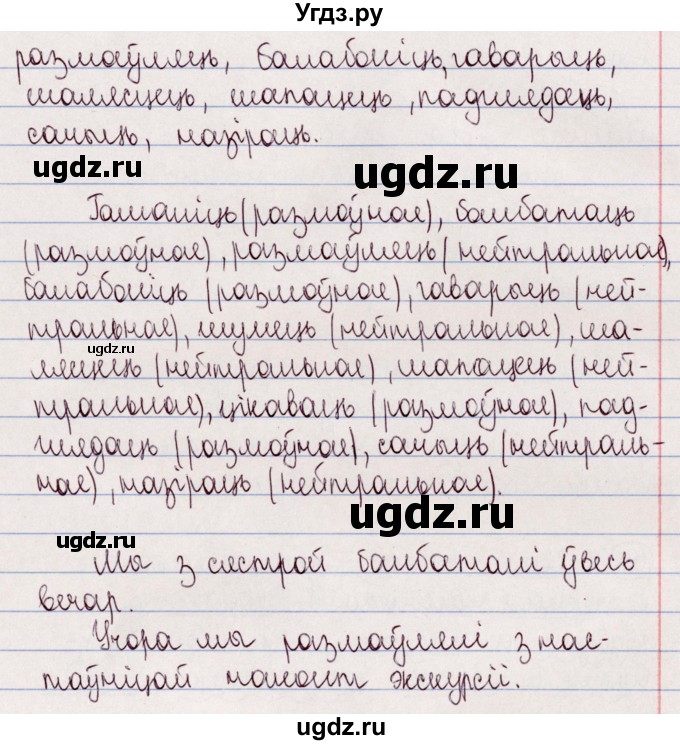 Угдз.ру
размаўляць, балабоніць, гаварыць,
шамясцець, шапацець, падглядаць,
сачыць, назіраць.
ugdz.ru ugdz.ru
Гаманіць (размоўнае), бамбатаць
(размоўнае), размаўляць (нейтральнае),
балабоніць (размоўнае), гаварыць (ней-
тральнае), шумець (нейтральнае), ша-
ugdz.ru
(нейтральнае), шапацець (ней-
тральнае), цікаваць (размоўнае), пад-
глядаць (размоўнае), сачыць (нейтраль-
нае), назіраць (нейтральнае).
ugdz.ru
ugdz.ru
Мы з сястрой бамбаталі ўвесь
вечар.
Учора мы размаўлялі з нас-
таўніцай наконт экскурсіі.
ugdz.ru